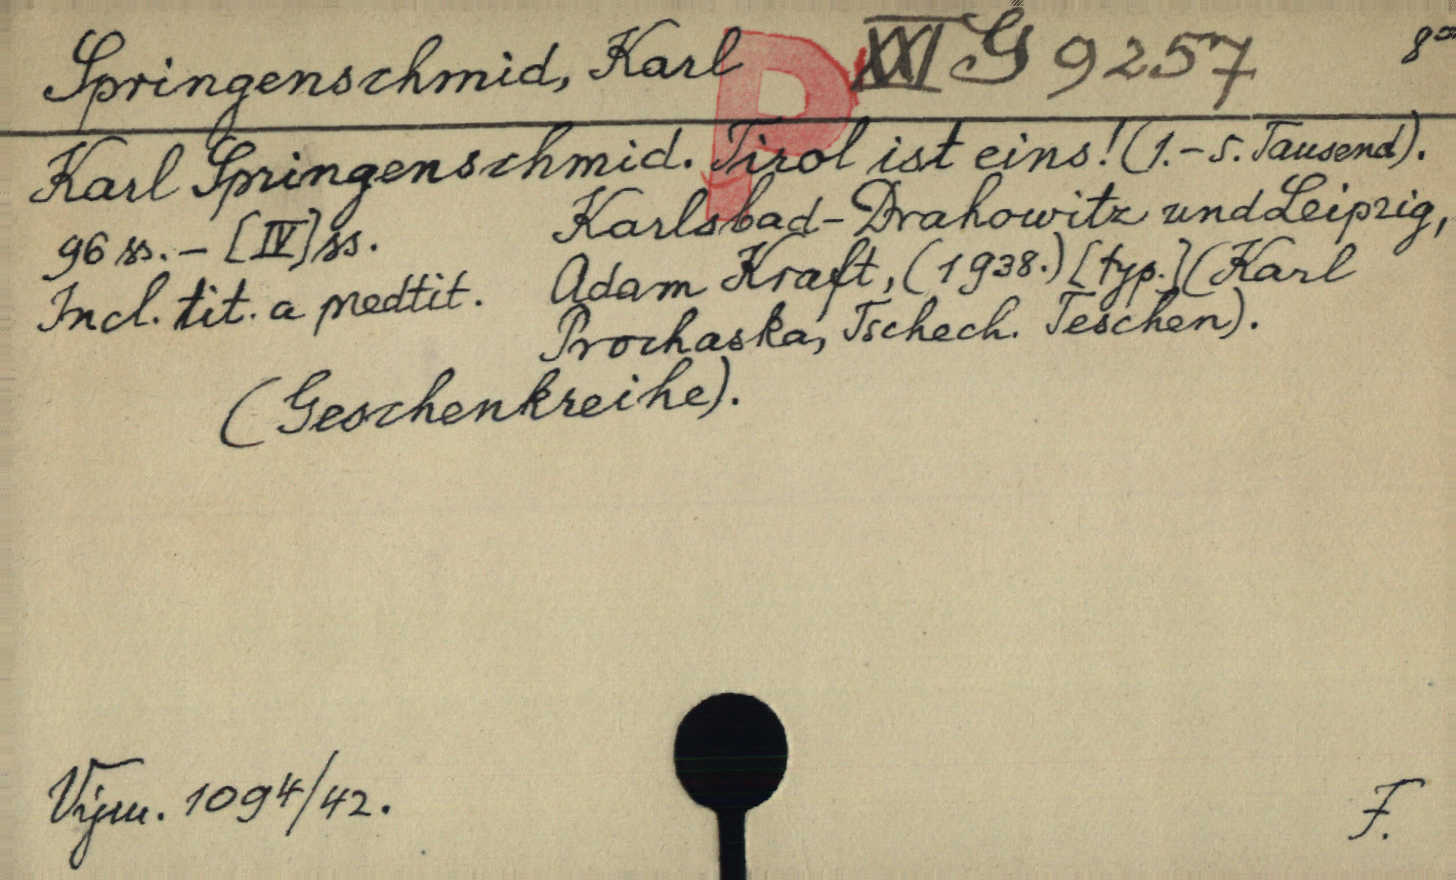 Springenschmid, Karl P XXI G 9257 8°
Karl Springenschmid. Tirol ist eins! (1.-5. Tausend).
96 ss. - [IV] ss. Karlsbad-Drahowitz und Leipzig,
Incl. tit. a předtit. Adam Kraft, (1938.) [typ.] (Karl
Prochaska, Tschech. Teschen).
(Geschenkreihe).
Vým. 1094/42. F.